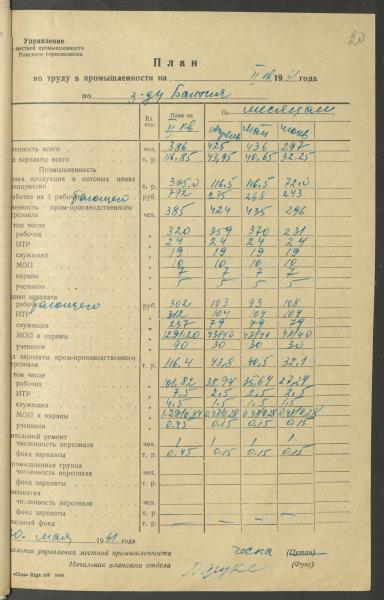 20
Управление
местной промышленности
Рижского горисполкома
План
по труду в промышленности на II кв 1961 года
по з-ду Балтия
Ед. изм. План на II кв По месяцам
апрель май июнь
ленность всего чел. 386 425 436 297
д зарплаты всего т. р. 116,85 43,95 40,65 32,25
Промышленность
вая продукция в оптовых ценах
предприятия т. р. 305,0 116,5 116,5 72,0
работка на 1 работающего руб. 792 275 268 243
ленность пром-производственного
персонала чел. 385 424 435 296
том числе
рабочих 320 359 370 231
ИТР 24 24 24 24
служащих 19 19 19 19
МОП 10 10 10 10
охраны 7 7 7 7
учеников 5 5 5 5
зарплата
работающего руб. 302 103 93 108
ИТР 312 104 104 104
служащих 237 79 79 79
МОП и охраны
учеников 90 30 30 30
д зарплаты пром-производственного
персонала т. р. 116,4 43,8 40,5 32,1
том числе
рабочих 101,82 38,94 35,64 27,24
ИТР 7,5 2,5 2,5 2,5
служащих 4,5 1,5 1,5 1,5
МОП и охраны
учеников 0,45 0,15 0,15 0,15
ительный ремонт
численность персонала чел. 1 1 1 1
фонд зарплаты т. р. 0,45 0,15 0,15 0,15
промышленная группа
численность персонала чел.
фонд зарплаты т. р.
численность персонала чел.
фонд зарплаты т. р.
фонд т. р. — — — —
30. мая 1961 года
чальник управления местной промышленности
Начальник планового отдела (Фукс)